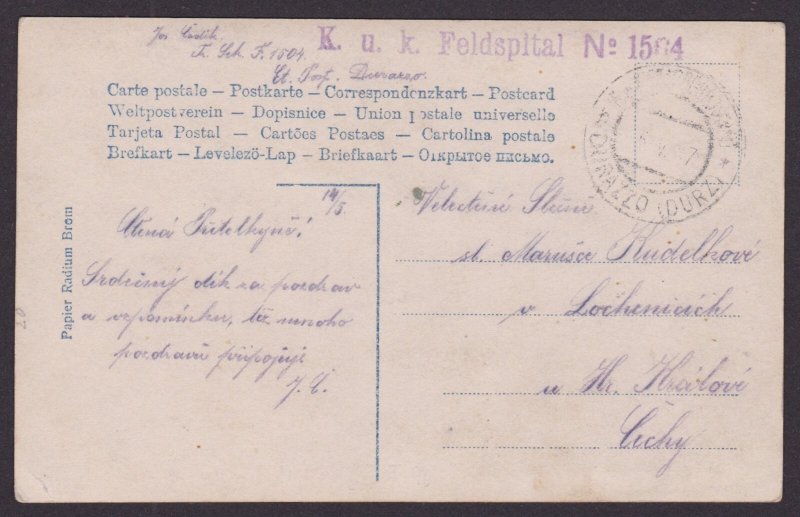 Jos.
F. 1504
K. u. k. Feldspital No 1504
Et. Post. Durazzo.
Carte postale – Postkarte – Correspondenzkart – Postcard
Weltpostverein – Dopisnice – Union postale universelle
Tarjeta Postal – Cartões Postaes – Cartolina postale
Brefkart – Levelezö-Lap – Briefkaart – Открытое письмо.
DURAZZO (DURZ)
14/5
Ctěná Přítelkyně!
Srdečný dík za pozdrav
a vzpomínku, též mnoho
pozdravů připojuje
J. Č.
Velectěné Slečně
sl. Maruška Kudelkové
v Lochenicích
u Hr. Králové
Čechy
Papier Radium Brom